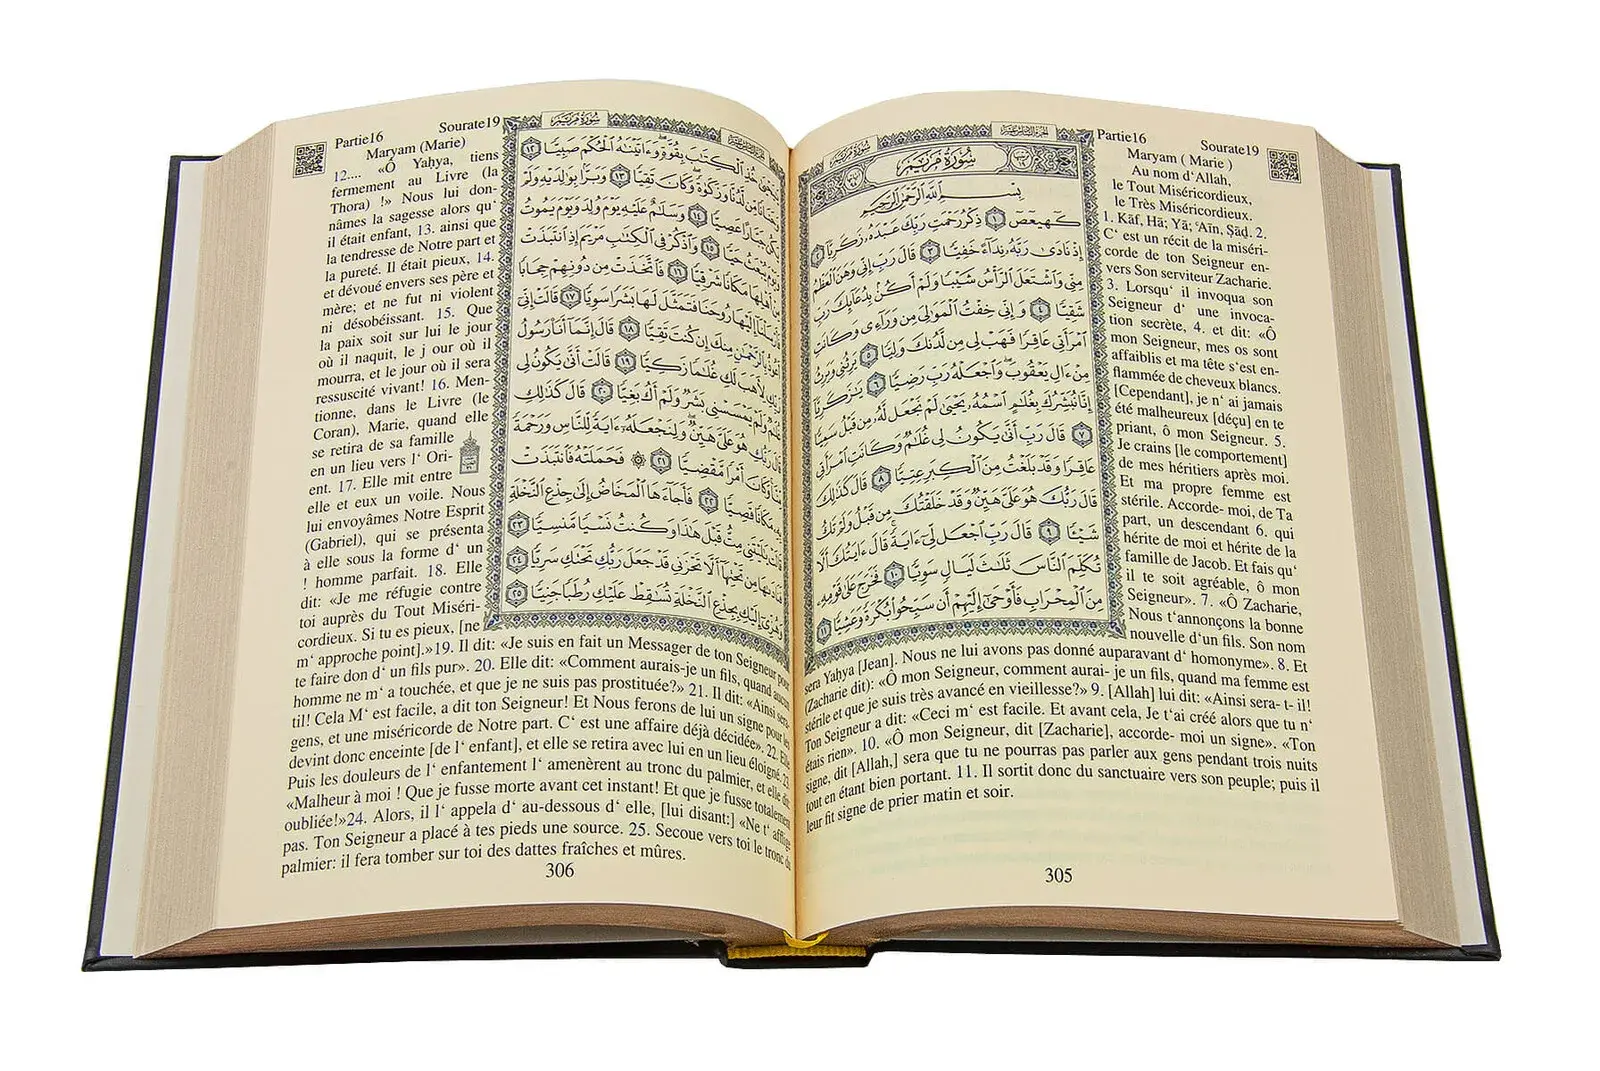 Partie16 Sourate19
Maryam ( Marie )
Au nom d‘Allah,
le Tout Miséricordieux,
le Très Miséricordieux.
1. Kāf, Hā; Yā; ‘Aīn, Ṣād. 2.
C‘ est un récit de la miséri-
corde de ton Seigneur en-
vers Son serviteur Zacharie.
3. Lorsqu‘ il invoqua son
Seigneur d‘ une invoca-
tion secrète, 4. et dit: «Ô
mon Seigneur, mes os sont
affaiblis et ma tête s‘est en-
flammée de cheveux blancs.
[Cependant], je n‘ ai jamais
été malheureux [déçu] en te
priant, ô mon Seigneur. 5.
Je crains [le comportement]
de mes héritiers après moi.
Et ma propre femme est
stérile. Accorde- moi, de Ta
part, un descendant 6. qui
hérite de moi et hérite de la
famille de Jacob. Et fais qu‘
il te soit agréable, ô mon
Seigneur». 7. «Ô Zacharie,
Nous t‘annonçons la bonne
nouvelle d‘un fils. Son nom
sera Yaḥya [Jean]. Nous ne lui avons pas donné auparavant d‘ homonyme». 8. Et
(Zacharie dit): «Ô mon Seigneur, comment aurai- je un fils, quand ma femme est
stérile et que je suis très avancé en vieillesse?» 9. [Allah] lui dit: «Ainsi sera- t- il!
Ton Seigneur a dit: «Ceci m‘ est facile. Et avant cela, Je t‘ai créé alors que tu n‘
étais rien». 10. «Ô mon Seigneur, dit [Zacharie], accorde- moi un signe». «Ton
signe, dit [Allah,] sera que tu ne pourras pas parler aux gens pendant trois nuits
tout en étant bien portant. 11. Il sortit donc du sanctuaire vers son peuple; puis il
leur fit signe de prier matin et soir.
الجزء السادس عشر سورة مريم
سُورَةُ مَرْيَمَ
بِسْمِ اللَّهِ الرَّحْمَٰنِ الرَّحِيمِ
كٓهيعٓصٓ ١ ذِكْرُ رَحْمَتِ رَبِّكَ عَبْدَهُۥ زَكَرِيَّآ ٢
إِذْ نَادَىٰ رَبَّهُۥ نِدَآءً خَفِيًّا ٣ قَالَ رَبِّ إِنِّى وَهَنَ ٱلْعَظْمُ
مِنِّى وَٱشْتَعَلَ ٱلرَّأْسُ شَيْبًا وَلَمْ أَكُنۢ بِدُعَآئِكَ رَبِّ
شَقِيًّا ٤ وَإِنِّى خِفْتُ ٱلْمَوَٰلِىَ مِن وَرَآءِى وَكَانَتِ
ٱمْرَأَتِى عَاقِرًا فَهَبْ لِى مِن لَّدُنكَ وَلِيًّا ٥ يَرِثُنِى وَيَرِثُ
مِنْ ءَالِ يَعْقُوبَ وَٱجْعَلْهُ رَبِّ رَضِيًّا ٦ يَٰزَكَرِيَّآ
إِنَّا نُبَشِّرُكَ بِغُلَٰمٍ ٱسْمُهُۥ يَحْيَىٰ لَمْ نَجْعَل لَّهُۥ مِن قَبْلُ سَمِيًّا
٧ قَالَ رَبِّ أَنَّىٰ يَكُونُ لِى غُلَٰمٌ وَكَانَتِ ٱمْرَأَتِى
عَاقِرًا وَقَدْ بَلَغْتُ مِنَ ٱلْكِبَرِ عِتِيًّا ٨ قَالَ كَذَٰلِكَ
قَالَ رَبُّكَ هُوَ عَلَىَّ هَيِّنٌ وَقَدْ خَلَقْتُكَ مِن قَبْلُ وَلَمْ تَكُ
شَيْـًٔا ٩ قَالَ رَبِّ ٱجْعَل لِّىٓ ءَايَةً قَالَ ءَايَتُكَ أَلَّا
تُكَلِّمَ ٱلنَّاسَ ثَلَٰثَ لَيَالٍ سَوِيًّا ١٠ فَخَرَجَ عَلَىٰ قَوْمِهِۦ
مِنَ ٱلْمِحْرَابِ فَأَوْحَىٰٓ إِلَيْهِمْ أَن سَبِّحُوا۟ بُكْرَةً وَعَشِيًّا ١١
305
Partie16 Sourate19
Maryam (Marie)
12.... «Ô Yaḥya, tiens
fermement au Livre (la
Thora) !» Nous lui don-
nâmes la sagesse alors qu‘
il était enfant, 13. ainsi que
la tendresse de Notre part et
la pureté. Il était pieux, 14.
et dévoué envers ses père et
mère; et ne fut ni violent
ni désobéissant. 15. Que
la paix soit sur lui le jour
où il naquit, le j our où il
mourra, et le jour où il sera
ressuscité vivant! 16. Men-
tionne, dans le Livre (le
Coran), Marie, quand elle
se retira de sa famille
en un lieu vers l‘ Ori-
ent. 17. Elle mit entre
elle et eux un voile. Nous
lui envoyâmes Notre Esprit
(Gabriel), qui se présenta
à elle sous la forme d‘ un
! homme parfait. 18. Elle
dit: «Je me réfugie contre
toi auprès du Tout Miséri-
cordieux. Si tu es pieux, [ne
m‘ approche point].»19. Il dit: «Je suis en fait un Messager de ton Seigneur pour
te faire don d‘ un fils pur». 20. Elle dit: «Comment aurais-je un fils, quand aucun
homme ne m‘ a touchée, et que je ne suis pas prostituée?» 21. Il dit: «Ainsi sera-
til! Cela M‘ est facile, a dit ton Seigneur! Et Nous ferons de lui un signe pour les
gens, et une miséricorde de Notre part. C‘ est une affaire déjà décidée». 22. Elle
devint donc enceinte [de l‘ enfant], et elle se retira avec lui en un lieu éloigné. 23.
Puis les douleurs de l‘ enfantement l‘ amenèrent au tronc du palmier, et elle dit:
«Malheur à moi ! Que je fusse morte avant cet instant! Et que je fusse totalement
oubliée!»24. Alors, il l‘ appela d‘ au-dessous d‘ elle, [lui disant:] «Ne t‘ afflige
pas. Ton Seigneur a placé à tes pieds une source. 25. Secoue vers toi le tronc du
palmier: il fera tomber sur toi des dattes fraîches et mûres.
الجزء السادس عشر سورة مريم
يَٰيَحْيَىٰ خُذِ ٱلْكِتَٰبَ بِقُوَّةٍ وَءَاتَيْنَٰهُ ٱلْحُكْمَ صَبِيًّا ١٢
وَحَنَانًا مِّن لَّدُنَّا وَزَكَوٰةً وَكَانَ تَقِيًّا ١٣ وَبَرًّۢا بِوَٰلِدَيْهِ وَلَمْ
يَكُن جَبَّارًا عَصِيًّا ١٤ وَسَلَٰمٌ عَلَيْهِ يَوْمَ وُلِدَ وَيَوْمَ يَمُوتُ
وَيَوْمَ يُبْعَثُ حَيًّا ١٥ وَٱذْكُرْ فِى ٱلْكِتَٰبِ مَرْيَمَ إِذِ ٱنتَبَذَتْ
مِنْ أَهْلِهَا مَكَانًا شَرْقِيًّا ١٦ فَٱتَّخَذَتْ مِن دُونِهِمْ حِجَابًا
فَأَرْسَلْنَآ إِلَيْهَا رُوحَنَا فَتَمَثَّلَ لَهَا بَشَرًا سَوِيًّا ١٧ قَالَتْ إِنِّىٓ
أَعُوذُ بِٱلرَّحْمَٰنِ مِنكَ إِن كُنتَ تَقِيًّا ١٨ قَالَ إِنَّمَآ أَنَا۠ رَسُولُ
رَبِّكِ لِأَهَبَ لَكِ غُلَٰمًا زَكِيًّا ١٩ قَالَتْ أَنَّىٰ يَكُونُ لِى
غُلَٰمٌ وَلَمْ يَمْسَسْنِى بَشَرٌ وَلَمْ أَكُ بَغِيًّا ٢٠ قَالَ كَذَٰلِكِ
قَالَ رَبُّكِ هُوَ عَلَىَّ هَيِّنٌ وَلِنَجْعَلَهُۥٓ ءَايَةً لِّلنَّاسِ وَرَحْمَةً
مِّنَّا وَكَانَ أَمْرًا مَّقْضِيًّا ٢١ ۞ فَحَمَلَتْهُ فَٱنتَبَذَتْ
بِهِۦ مَكَانًا قَصِيًّا ٢٢ فَأَجَآءَهَا ٱلْمَخَاضُ إِلَىٰ جِذْعِ ٱلنَّخْلَةِ
قَالَتْ يَٰلَيْتَنِى مِتُّ قَبْلَ هَٰذَا وَكُنتُ نَسْيًا مَّنسِيًّا ٢٣
فَنَادَىٰهَا مِن تَحْتِهَآ أَلَّا تَحْزَنِى قَدْ جَعَلَ رَبُّكِ تَحْتَكِ سَرِيًّا ٢٤
وَهُزِّىٓ إِلَيْكِ بِجِذْعِ ٱلنَّخْلَةِ تُسَٰقِطْ عَلَيْكِ رُطَبًا جَنِيًّا ٢٥
306